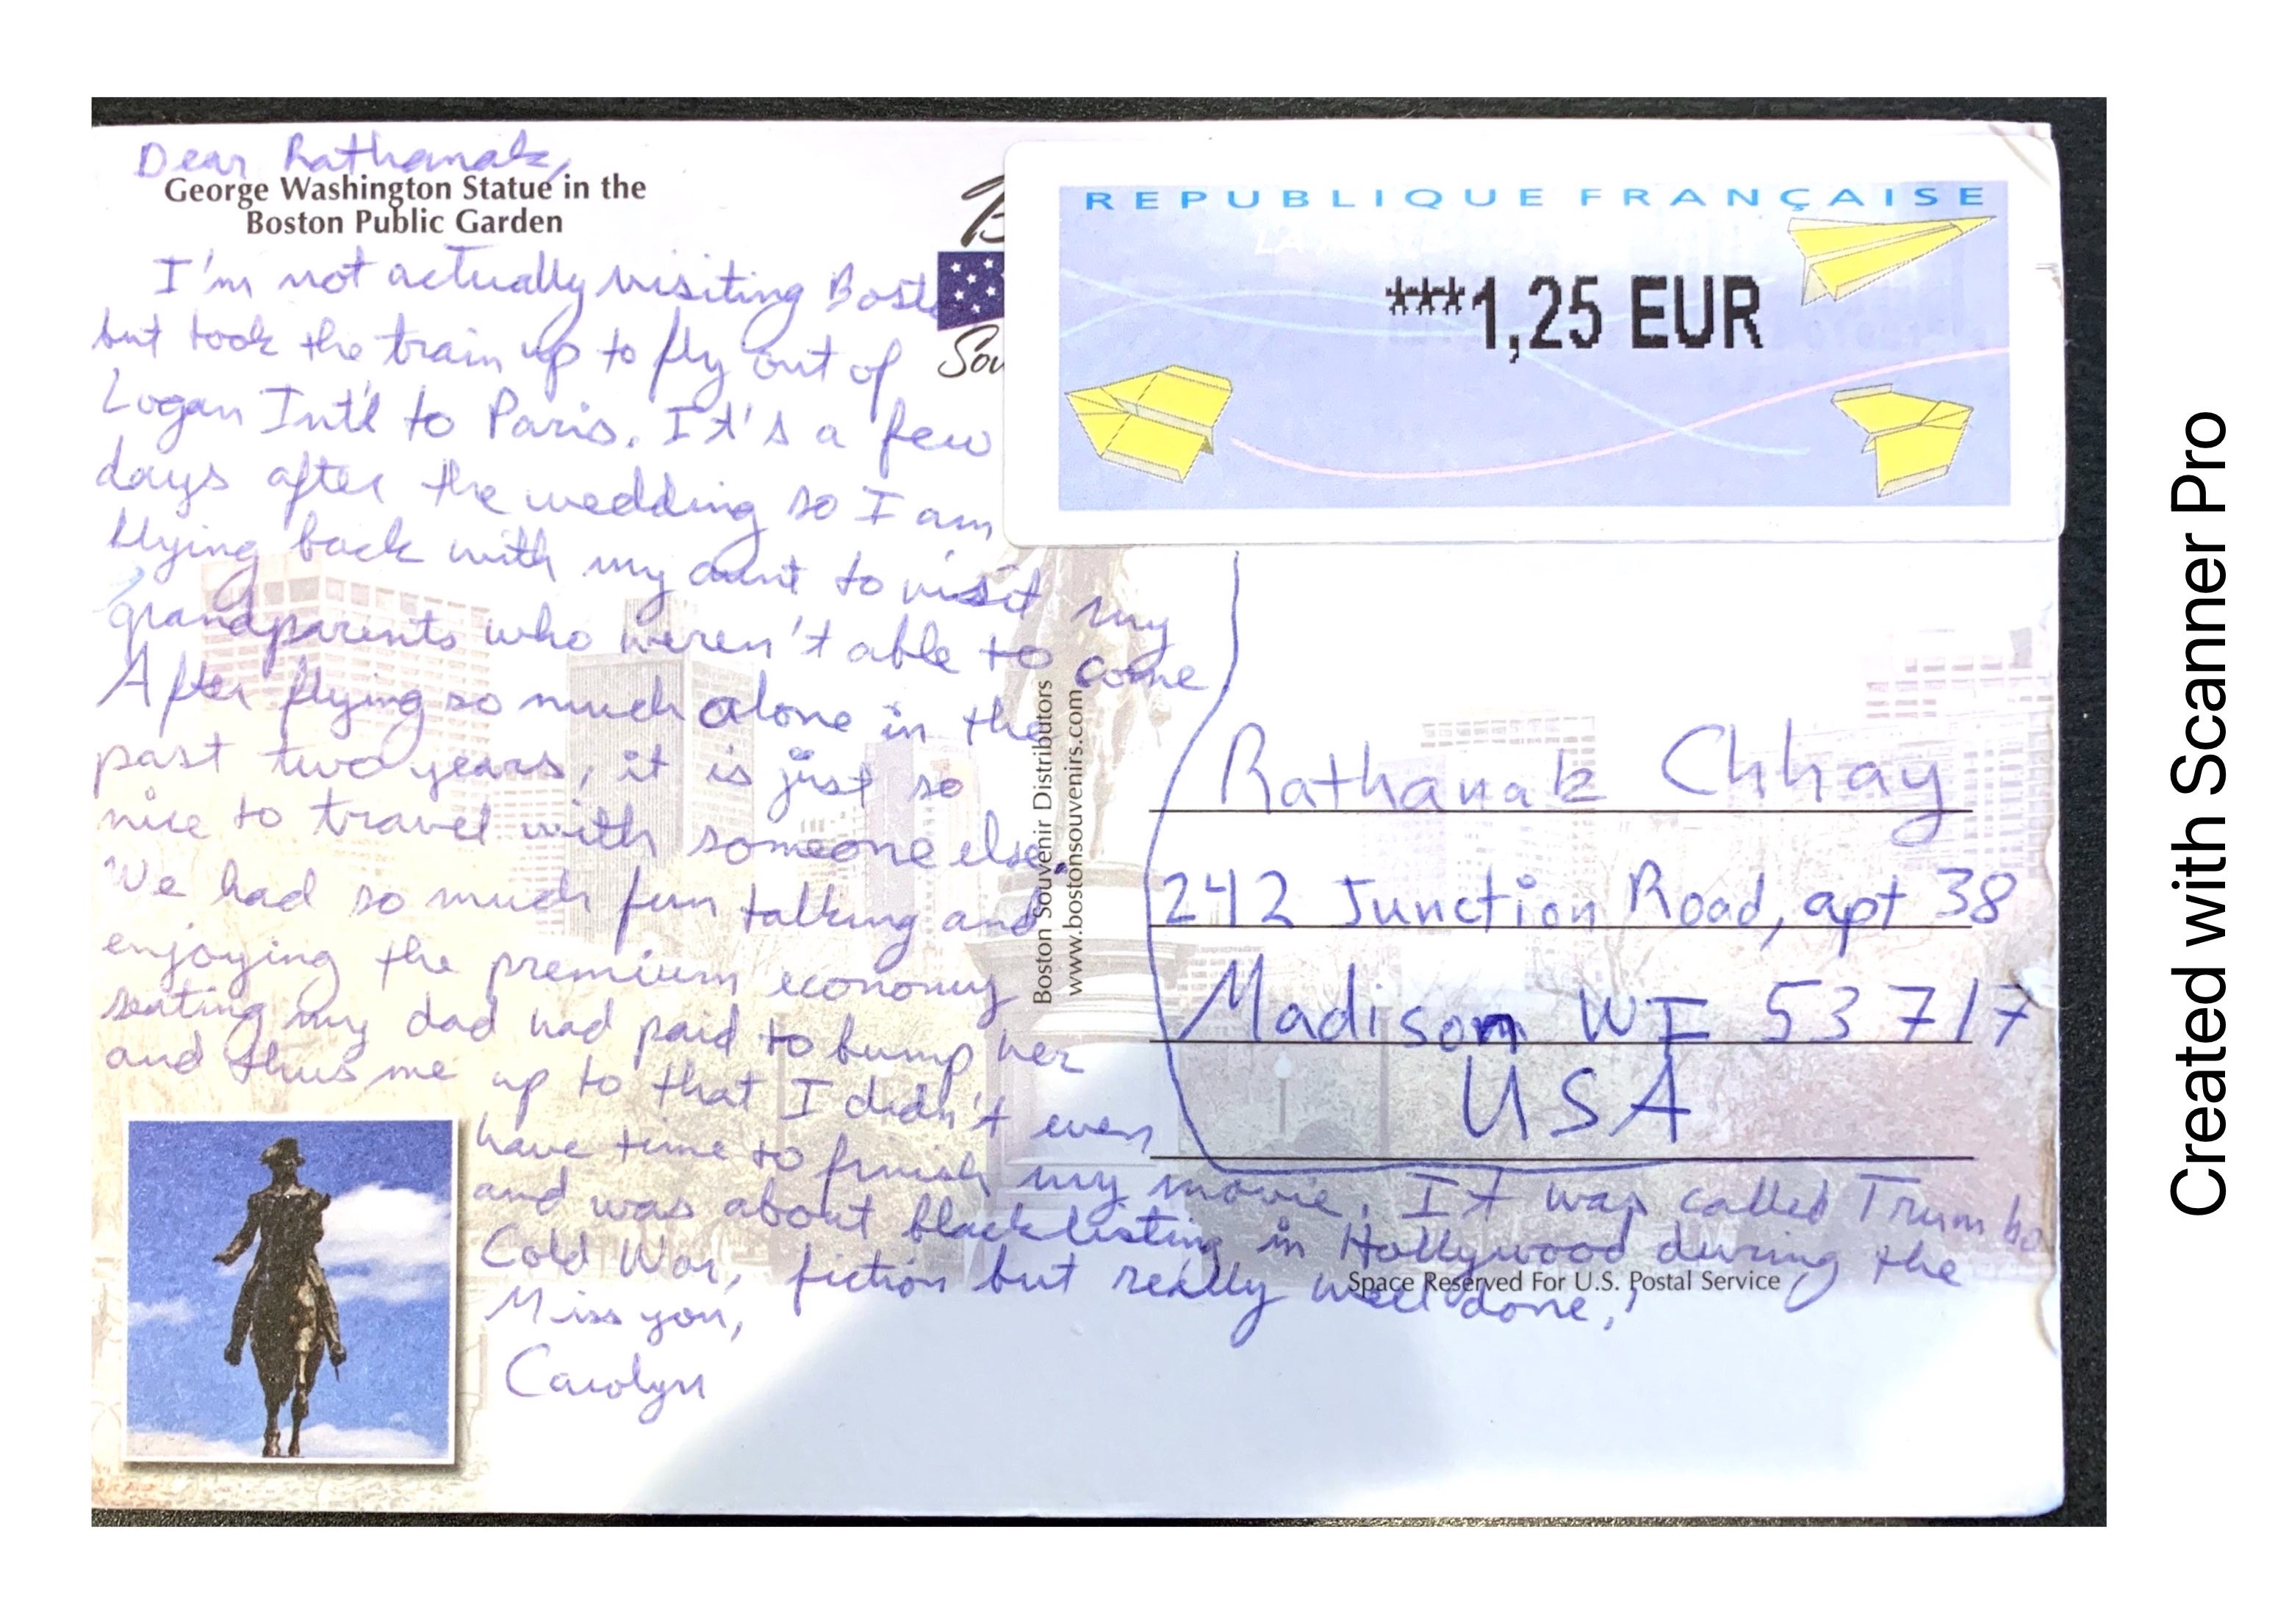 Dear Rathanak,
George Washington Statue in the
Boston Public Garden
I'm not actually visiting Bost
but took the train up to fly out of
Logan Int'l to Paris. It's a few
days after the wedding so I am
flying back with my aunt to visit my
grandparents who weren't able to come
After flying so much alone in the
past two years, it is just so
nice to travel with someone else.
We had so much fun talking and
enjoying the premium economy
seating my dad had paid to bump her
and thus me up to that I didn't even
have time to finish my movie. It was called Trumbo
and was about blacklisting in Hollywood during the
Cold War, fiction but really well done!
Miss you,
Carolyn
Sou
REPUBLIQUE FRANÇAISE
***1,25 EUR
Boston Souvenir Distributors
www.bostonsouvenirs.com
Rathanak Chhay
242 Junction Road, apt 38
Madison WI 53717
USA
Space Reserved For U.S. Postal Service
Created with Scanner Pro